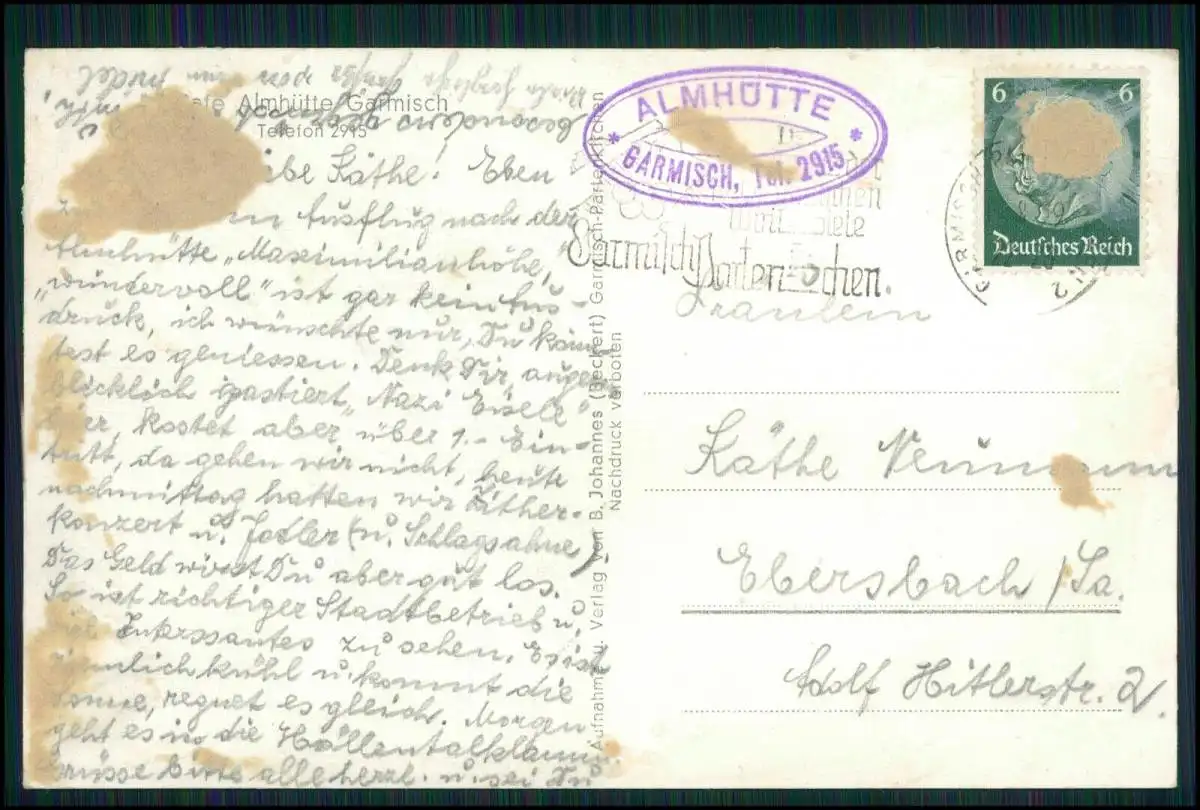 Almhütte Garmisch
Telefon 2915
Liebe Käthe! Eben
Ausflug nach der
Almhütte „Maximilianhöhe,"
„wundervoll" ist gar kein Aus-
druck, ich wünschte nur, Du könn-
test es geniessen. Denk Dir, augen-
blicklich gastiert „Nazi Eisele"
hier, kostet aber über 1.- Ein-
tritt, da gehen wir nicht, heute
nachmittag hatten wir Zither-
konzert u. Jodler (u. Schlagsahne)
Das Geld wirst Du aber gut los.
So ist richtiger Stadtbetrieb u.
viel Interssantes zu sehen. Es ist
ziemlich kühl u. kommt die
Sonne, regnet es gleich. Morgen
geht es in die Höllentalklamm
Grüsse bitte alle herzl. u. sei Du
besonders
Aufnahme u. Verlag von B. Johannes (Beckert) Garmisch-Partenkirchen
Nachdruck verboten
ALMHÜTTE
* *
GARMISCH, Tel. 2915
Garmisch Partenkirchen.
6 6
Deutsches Reich
Fräulein
Käthe Neumann
Ebersbach/Sa.
Adolf Hitlerstr. 2.